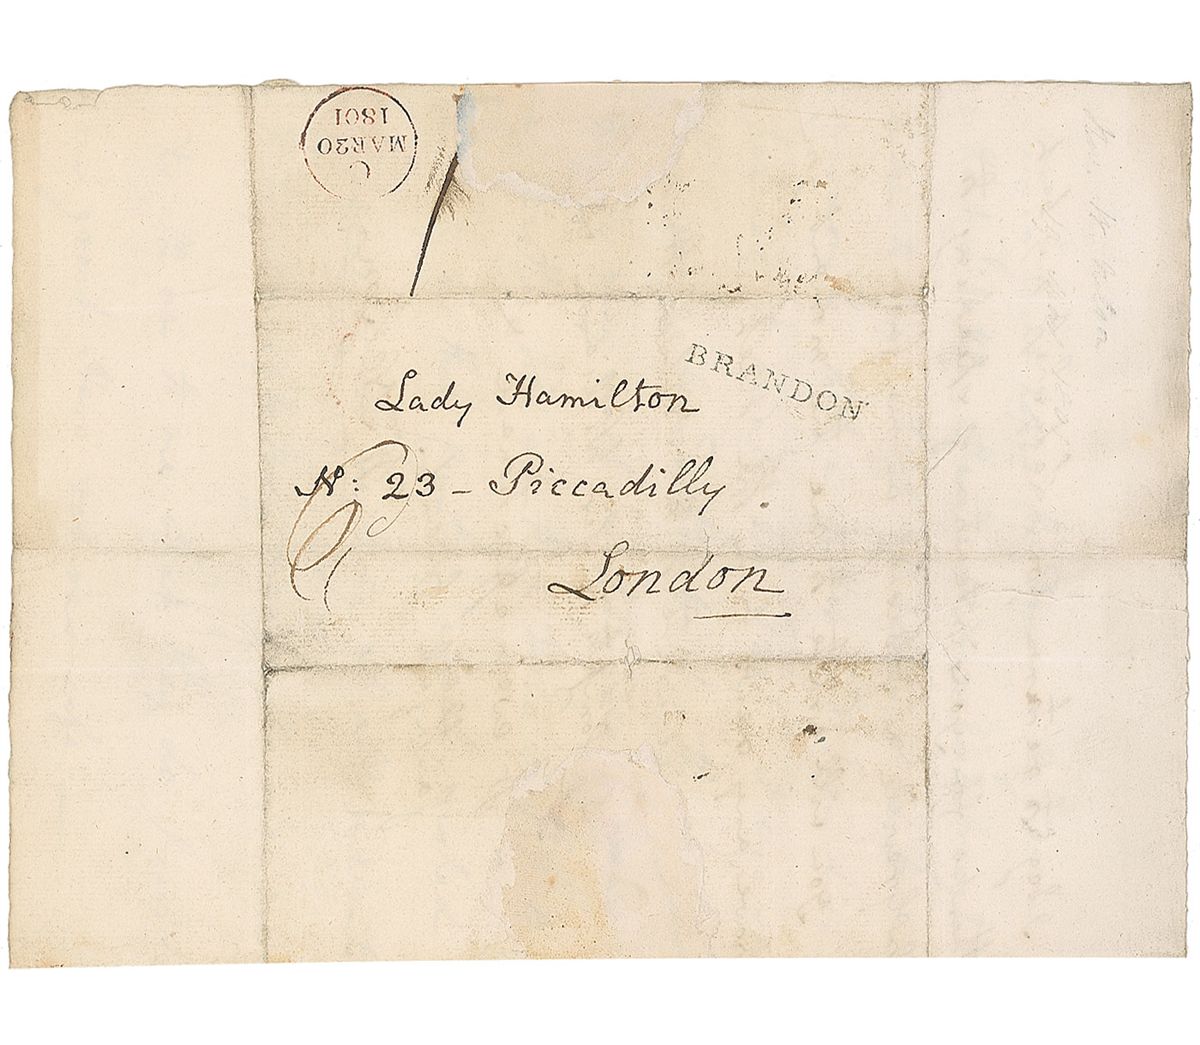 C
MAR20
1801
BRANDON
Lady Hamilton
N: 23 - Piccadilly
London